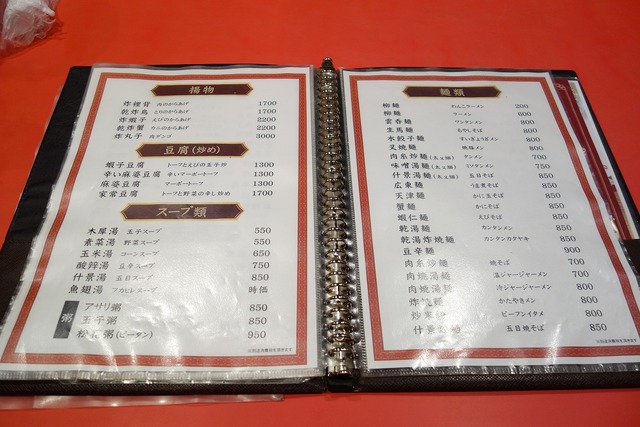 揚物
炸裡脊 肉のからあげ 1700
乾炸鳥 とりのからあげ 1700
炸蝦子 えびのからあげ 2200
乾炸蟹 カニのからあげ 2200
炸丸子 肉ダンゴ 3000
豆腐(炒め)
蝦子豆腐 トーフとえびの玉子炒 1300
辛い麻婆豆腐 辛いマーボートーフ 1300
麻婆豆腐 マーボートーフ 1300
家常豆腐 トーフと野菜の辛し炒め 1700
スープ類
木犀湯 玉子スープ 550
素菜湯 野菜スープ 550
玉米湯 コーンスープ 650
酸辣湯 豆辛スープ 750
什景湯 五目スープ 850
魚翅湯 フカヒレスープ 時価
粥
アサリ粥 850
玉子粥 850
松花粥(ピータン) 950
麺類
柳麺 わんこラーメン 200
柳麺 ラーメン
雲吞麺 ワンタンメン
生馬麺 もやしそば
水餃子麺 すいぎょうざメン
叉焼麺 焼豚メン
肉糸炒麺 タンメン 700
味噌湯麺 ミソタンメン 750
什景湯麺 五目そば 850
広東麺 うま煮そば 850
天津麺 かに玉そば 850
蟹麺 かにそば 850
蝦仁麺 えびそば 850
乾湯麺 カンタンメン 850
乾湯炸焼麺 カンタンカタヤキ 850
豆辛麺 900
肉糸炒麺 焼そば 700
肉焼湯麺 温ジャージャーメン 700
肉焼湯麺 冷ジャージャーメン 800
炸焼麺 かたやきメン 800
炒米 ビーフンイタメ 800
什景 麺 五目焼そば 850